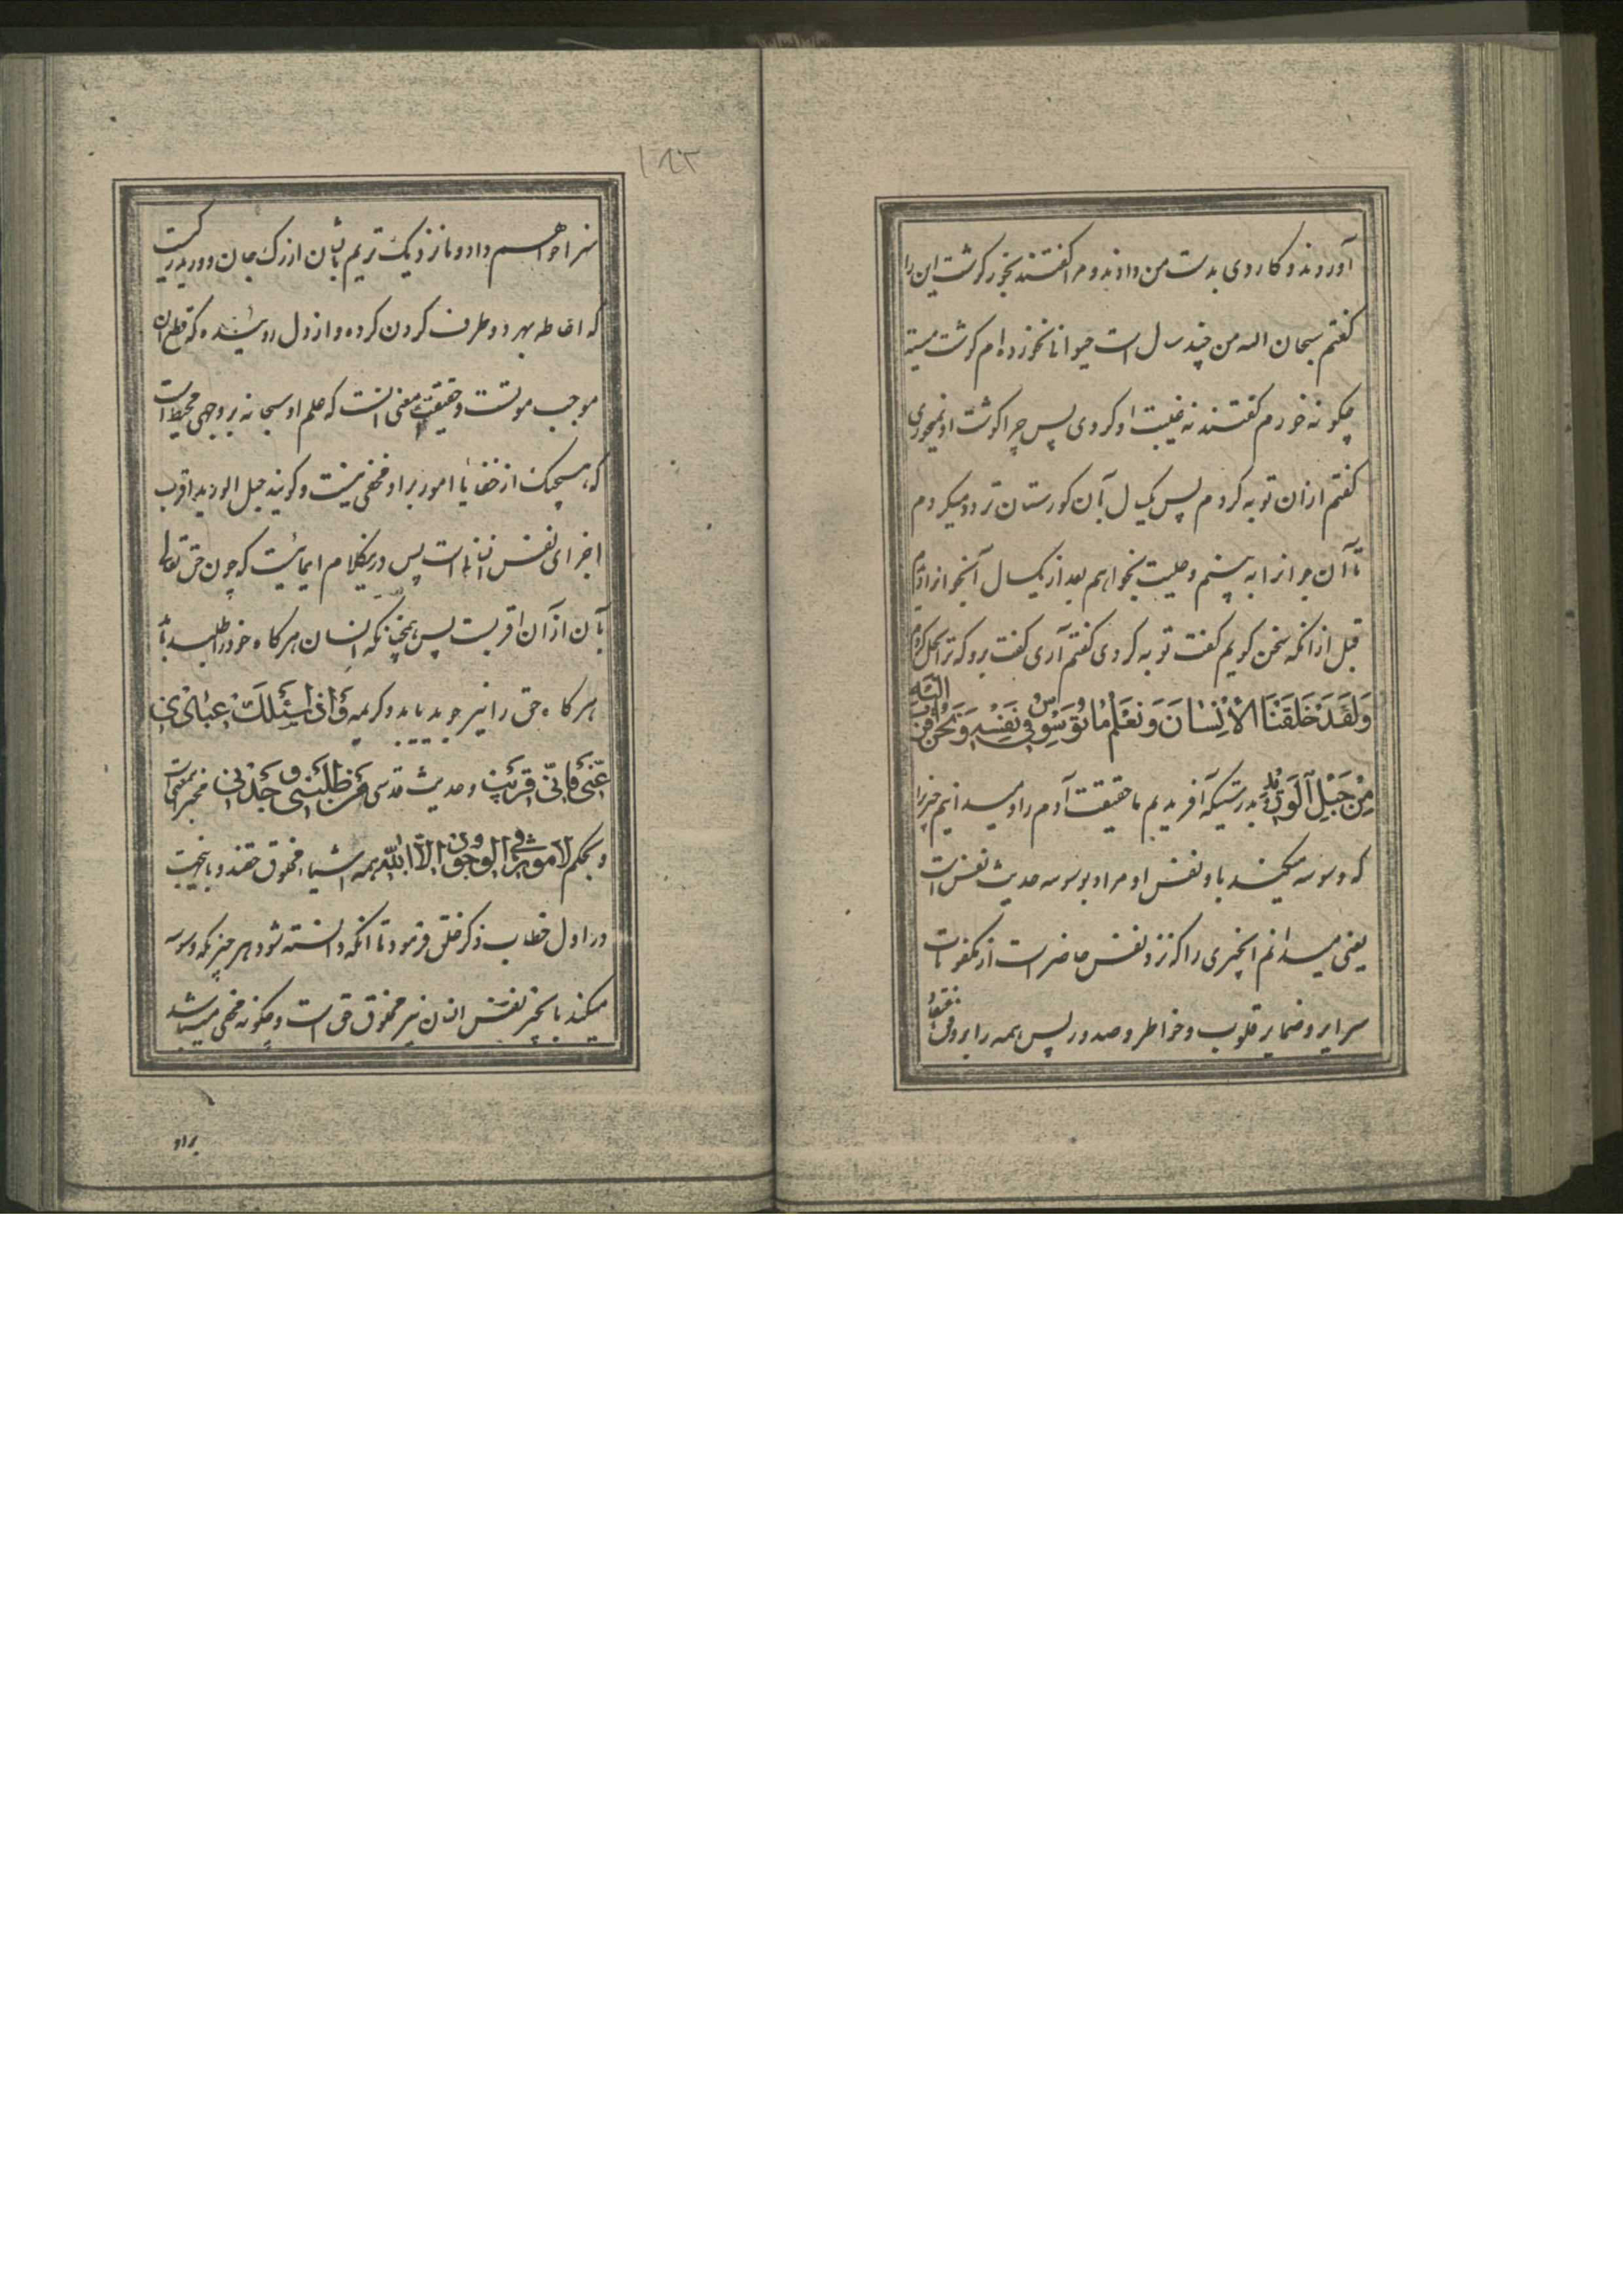 آوردند و کاردی بدست من دادند و مرا کفتند بخور کوشت این را
کفتم سبحان الله من چند سال است حیوانا نخورده‌ام کوشت میته
چکونه خورم کفتند نه غیبت او کردی پس چرا کوشت او نمیخوری
کفتم ازان توبه کردم پس یکسال بآن کورستان تردد میکردم
تا آن جوانرا به بینم و حلیت بخواهم بعد از یکسال آنجوانرا دیدم
قبل ازانکه سخن کویم کفت توبه کردی کفتم آری کفت برو که ترا بحل کردم
وَلَقَدْ خَلَقْنَا الْاِنْسانَ وَنَعْلَمُ ما تُوَسْوِسُ فی نَفْسِهِ وَنَحْنُ اَقْرَبُ اِلَیْهِ
مِنْ حَبْلِ الْوَریدِ بدرستیکه آفریدیم ما حقیقت آدم را و میدانیم چیزیرا
که وسوسه میکند باو نفس او مراد بوسوسه حدیث نفس است
یعنی میدانم آنچیزی را که نزد نفس حاضر است از مکنونات
سرایر و ضمایر قلوب و خواطر و صدور پس همه را بر وفق
سزا خواهم داد و ما نزدیک تریم بانسان از رک جان و ورید رکیست
که احاطه بهر دو طرف کردن کرده و از دل روئیده که قطع ان
موجب موتست و حقیقت معنی انست که علم او سبحانه بر وجهی محیط است
که هیچیک از خفایا امور بر او مخفی نیست و کویند حبل الورید اقرب
اجزای نفس انسانی است پس درینکلام ایمائیست که چون حق تعالی
بآن از آن اقربست پس همچنانکه انسان هرکاه خود را طلبد یابد
هرکاه حق را نیز جوید یابد و کریمه وَاِذا سَئَلَکَ عِبادی
عَنّی فَاِنّی قَریبٌ و حدیث قدسی مَنْ طَلَبَنی وَجَدَنی مخبر است
و بحکم لا موثر فی الوجود الا الله همه اشیاء مخلوق حقند و باینجهت
در اول خطاب ذکر خلق فرمود تا انکه دانسته شود هر چیزیکه وسوسه
میکند بآنچیز نفس انسان نیز مخلوق حق است و چکونه مخفی میباشد
براو